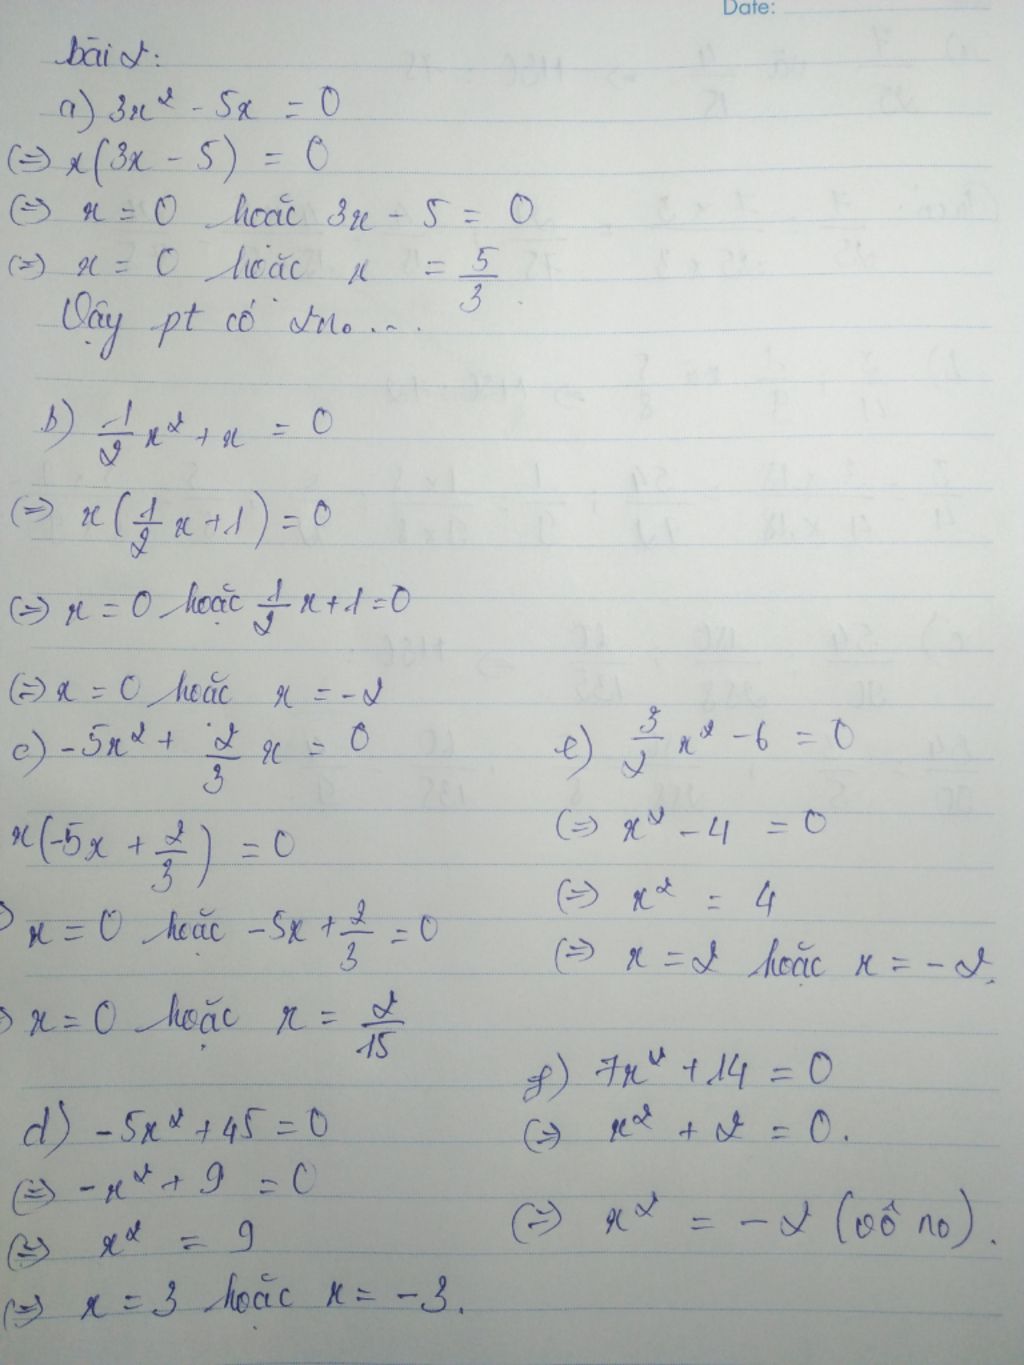 Date:
bài 2:
a) 3x² - 5x = 0
(=) x(3x - 5) = 0
(=) x = 0 hoặc 3x - 5 = 0
(=) x = 0 hoặc x = 5/3.
Vậy pt có 2no...
b) 1/2 x² + x = 0
(=) x(1/2 x + 1) = 0
(=) x = 0 hoặc 1/2 x + 1 = 0
(=) x = 0 hoặc x = -2
c) -5x² + 2/3 x = 0
x(-5x + 2/3) = 0
x = 0 hoặc -5x + 2/3 = 0
x = 0 hoặc x = 2/15
d) -5x² + 45 = 0
(=) -x² + 9 = 0
(=) x² = 9
(=) x = 3 hoặc x = -3.
e) 3/2 x² - 6 = 0
(=) x² - 4 = 0
(=) x² = 4
(=) x = 2 hoặc x = -2.
f) 7x² + 14 = 0
(=) x² + 2 = 0.
(=) x² = -2 (vô no).